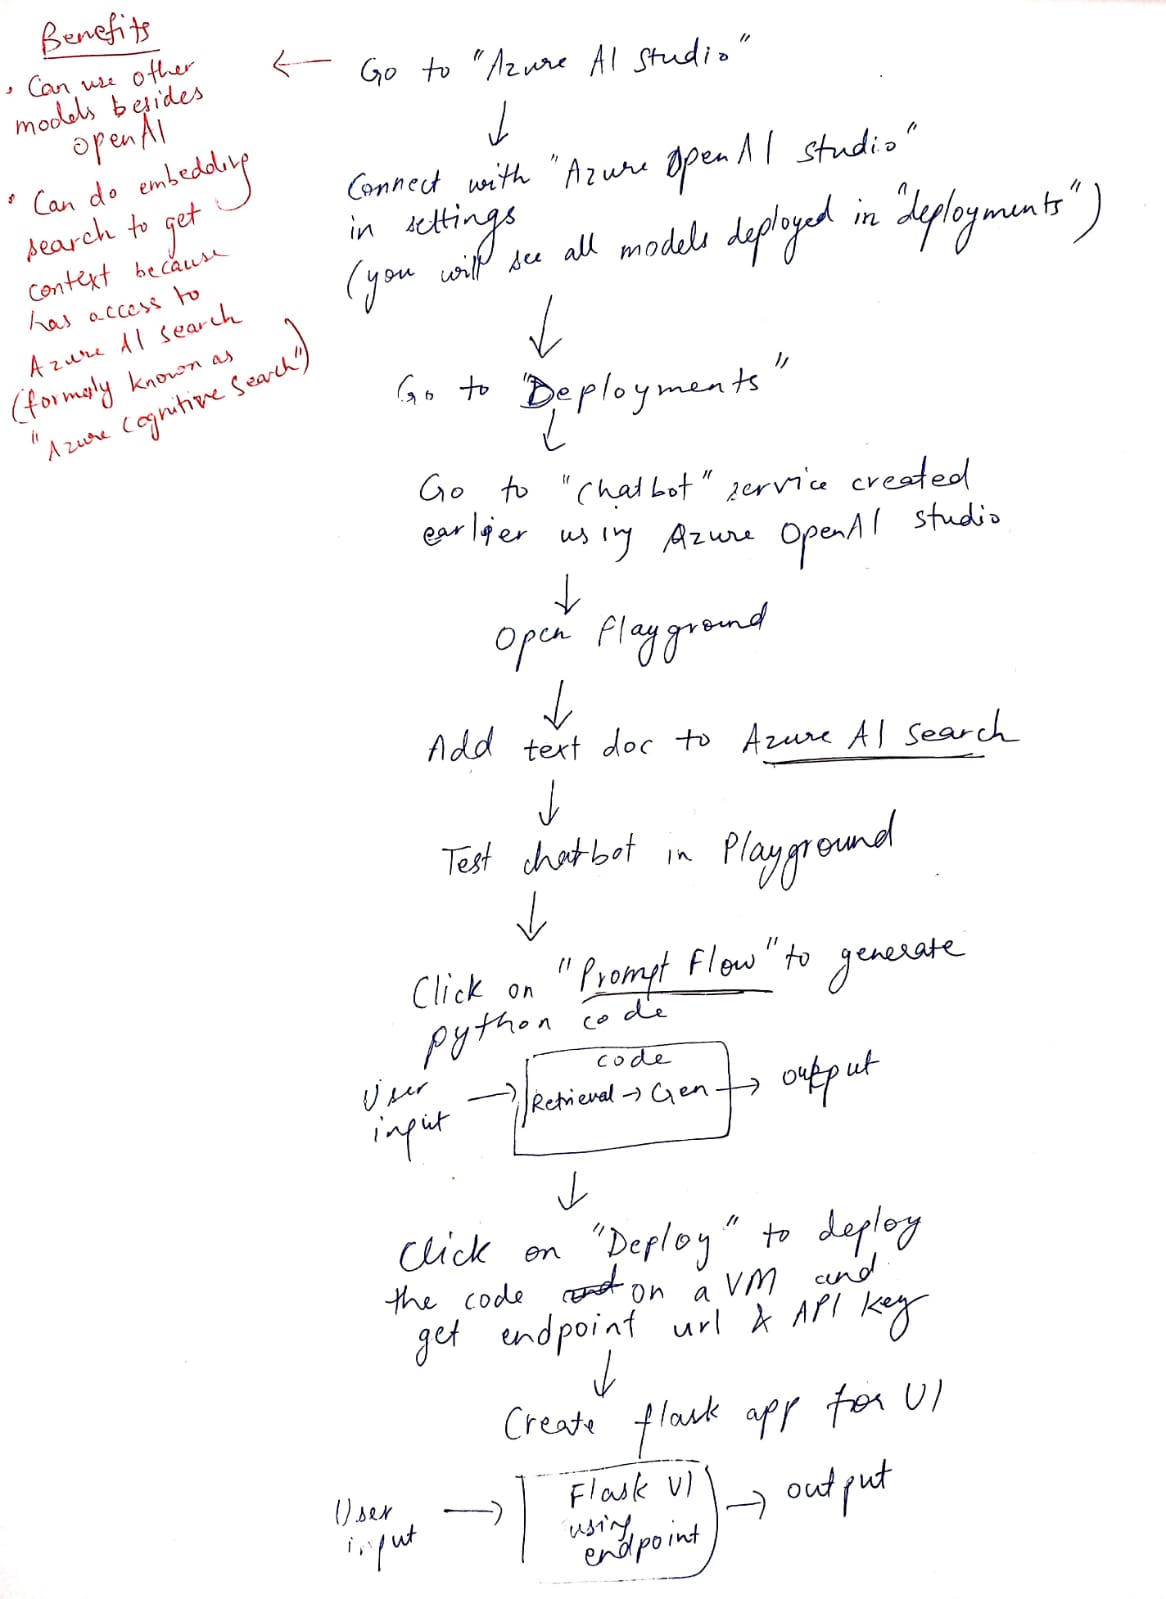 Benefits
• Can use other
models besides
openAI
• Can do embedding
search to get
context because
has access to
Azure AI search
(formerly known as
"Azure Cognitive Search")
← Go to "Azure AI Studio"
↓
Connect with "Azure OpenAI studio"
in settings
(you will see all models deployed in "deployments")
↓
Go to "Deployments"
↓
Go to "Chatbot" service created
earlier using Azure OpenAI studio
↓
Open Playground
↓
Add text doc to Azure AI search
↓
Test chatbot in Playground
↓
Click on "Prompt Flow" to generate
python code
code
User → Retrieval → Gen → output
input
↓
Click on "Deploy" to deploy
the code and on a VM and
get endpoint url & API key
↓
Create flask app for UI
User → Flask UI → output
input using
endpoint